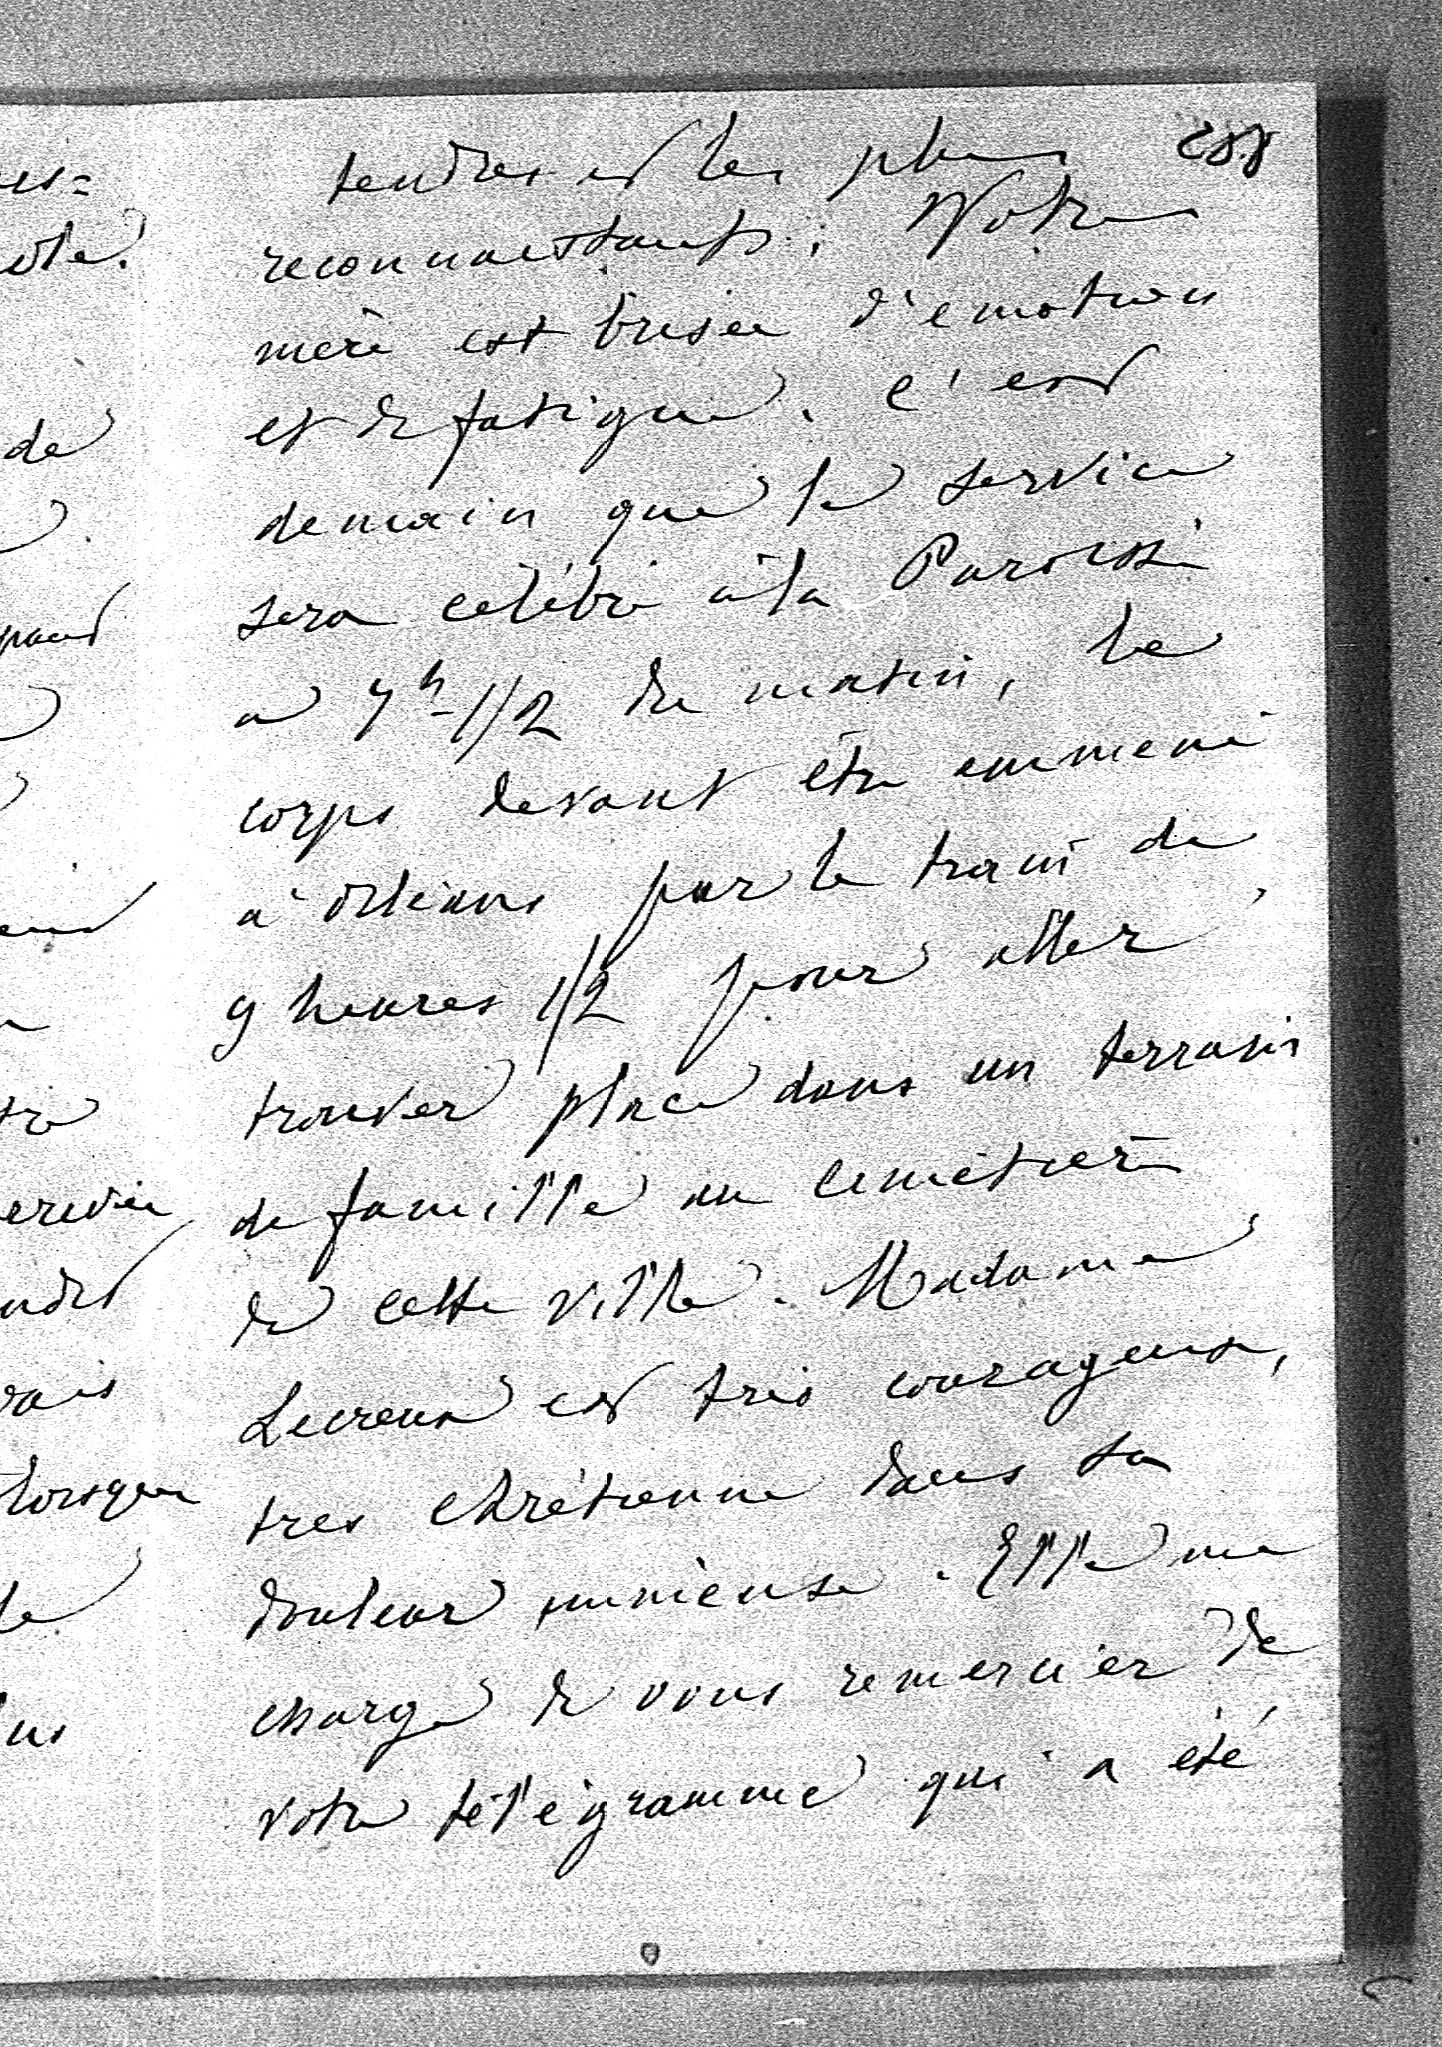 258
tendres et les plus
reconnaissants. Notre
mère est brisée d'émotion
et de fatigue. C'est
demain que le service
sera célébré à la Paroisse
à 7h 1/2 du matin, le
corps devant être emmené
à Orléans par le train de
9 heures 1/2 pour aller
trouver place dans un terrain
de famille au cimetière
de cette ville. Madame
Lecreux est très courageuse,
très chrétienne dans sa
douleur immense. Elle me
charge de vous remercier de
votre télégramme qui a été